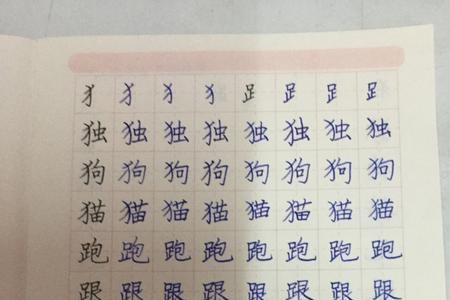 犭 犭 犭 犭 𧾷 𧾷 𧾷 𧾷
独 独 独 独 独 独 独 独
狗 狗 狗 狗 狗 狗 狗 狗
猫 猫 猫 猫 猫 猫 猫 猫
跑 跑 跑 跑 跑 跑 跑 跑
跟 跟 跟 跟 跟 跟 跟 跟